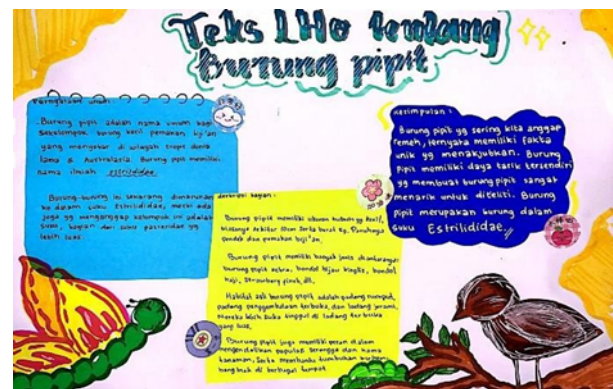 Teks LHO tentang
Burung pipit
Pernyataan umum:
Burung pipit adalah nama umum bagi
sekelompok burung kecil pemakan biji'an
yang menyebar di wilayah tropis dunia
lama & Australasia. Burung pipit memiliki
nama ilmiah estrildidae.
Burung-burung ini sekarang dimasukan
ke dalam suku Estrildidae, meski ada
juga yg menganggap kelompok ini adalah
suku, bagian dari suku passeridae yg
lebih luas.
deskripsi bagian:
Burung pipit memiliki ukuran tubuh yg kecil,
biasanya sekitar 10cm serta berat 6g. Paruhnya
pendek dan pemakan biji'an.
Burung pipit memiliki banyak jenis diantaranya
burung pipit zebra, bondol hijau binglis, bondol
haji, strawberry finch, dll.
Habitat asli burung pipit adalah padang rumput,
padang penggembalaan terbuka, dan ladang jerami,
mereka lebih suka tinggal di ladang terbuka
yang luas.
Burung pipit juga memiliki peran dalam
mengendalikan populasi serangga dan hama
tanaman, serta membantu tumbuhan
di berbagai tempat
Kesimpulan:
Burung pipit yg sering kita anggap
remeh, ternyata memiliki fakta
unik yg menakjubkan. Burung
pipit memiliki daya tarik tersendiri
yg membuat burung pipit sangat
menarik untuk diteliti. Burung
pipit merupakan burung dalam
suku Estrilididae.